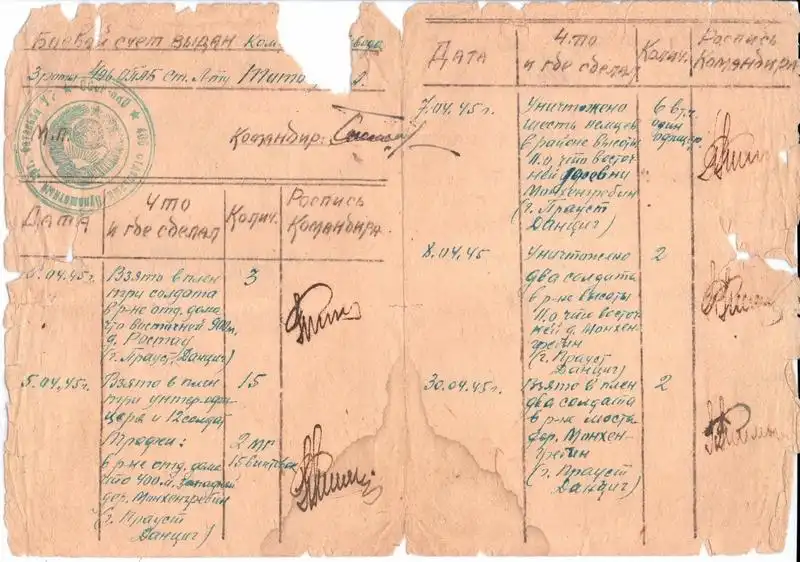 Боевой счет выдан Ком.
3 роты 496 ОПАБ Ст. Л-ту Тито
М.П.
Командир:
Дата
Что
и где сделал
Колич.
Роспись
Командира
.04.45г.
Взято в плен
три солдата
в р-не отд. дома
что восточней 900м.
д. Ростау
(г. Прауст, Данциг)
3
5.04.45г.
Взято в плен
три унтер-офи-
цера и 12 солдат
15
Трофеи:
2 МГ
в р-не отд. дома
15 винтовок
что 400 м. западней
дер. Монхенгребин
(г. Прауст
Данциг)
Дата
Что
и где сделал
Колич.
Роспись
Командира
7.04.45г.
Уничтожено
шесть немцев
в районе высоты
11.0, что восточ-
ней деревни
Монхенгребин
(г. Прауст
Данциг)
6 в т.ч.
один
офицер
8.04.45
Уничтожено
два солдата
в р-не высоты
11.0 что восто-
чней д. Монхен-
гребин
(г. Прауст
Данциг)
2
30.04.45г.
Взято в плен
два солдата
в р-не моста
дер. Монхен-
гребин
(г. Прауст
Данциг)
2